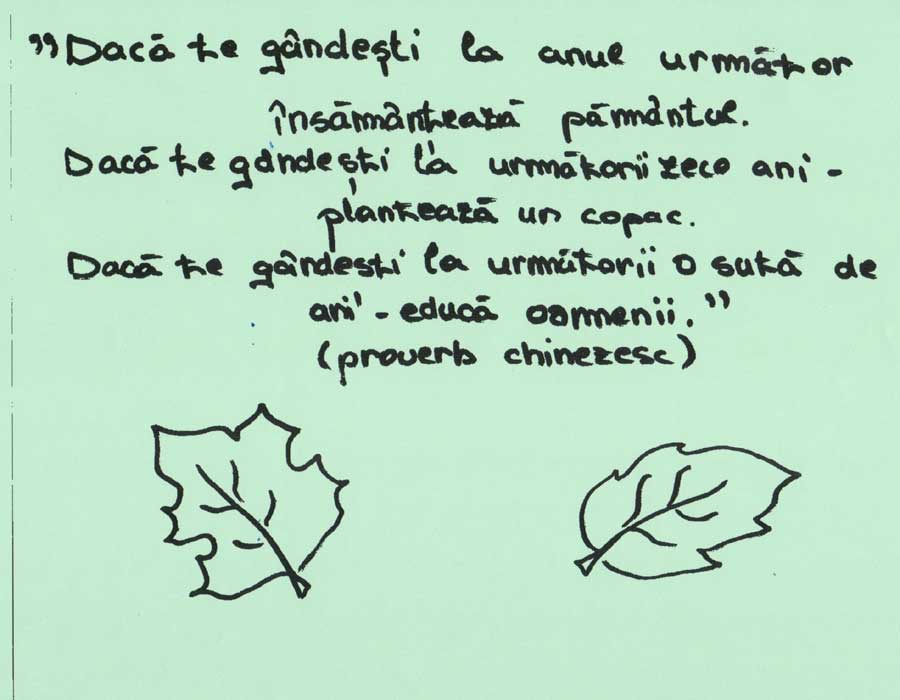 ”Dacă te gândești la anul următor
însământează pământul.
Dacă te gândești la următorii zece ani -
plantează un copac.
Dacă te gândești la următorii o sută de
ani - educă oamenii.”
(proverb chinezesc)